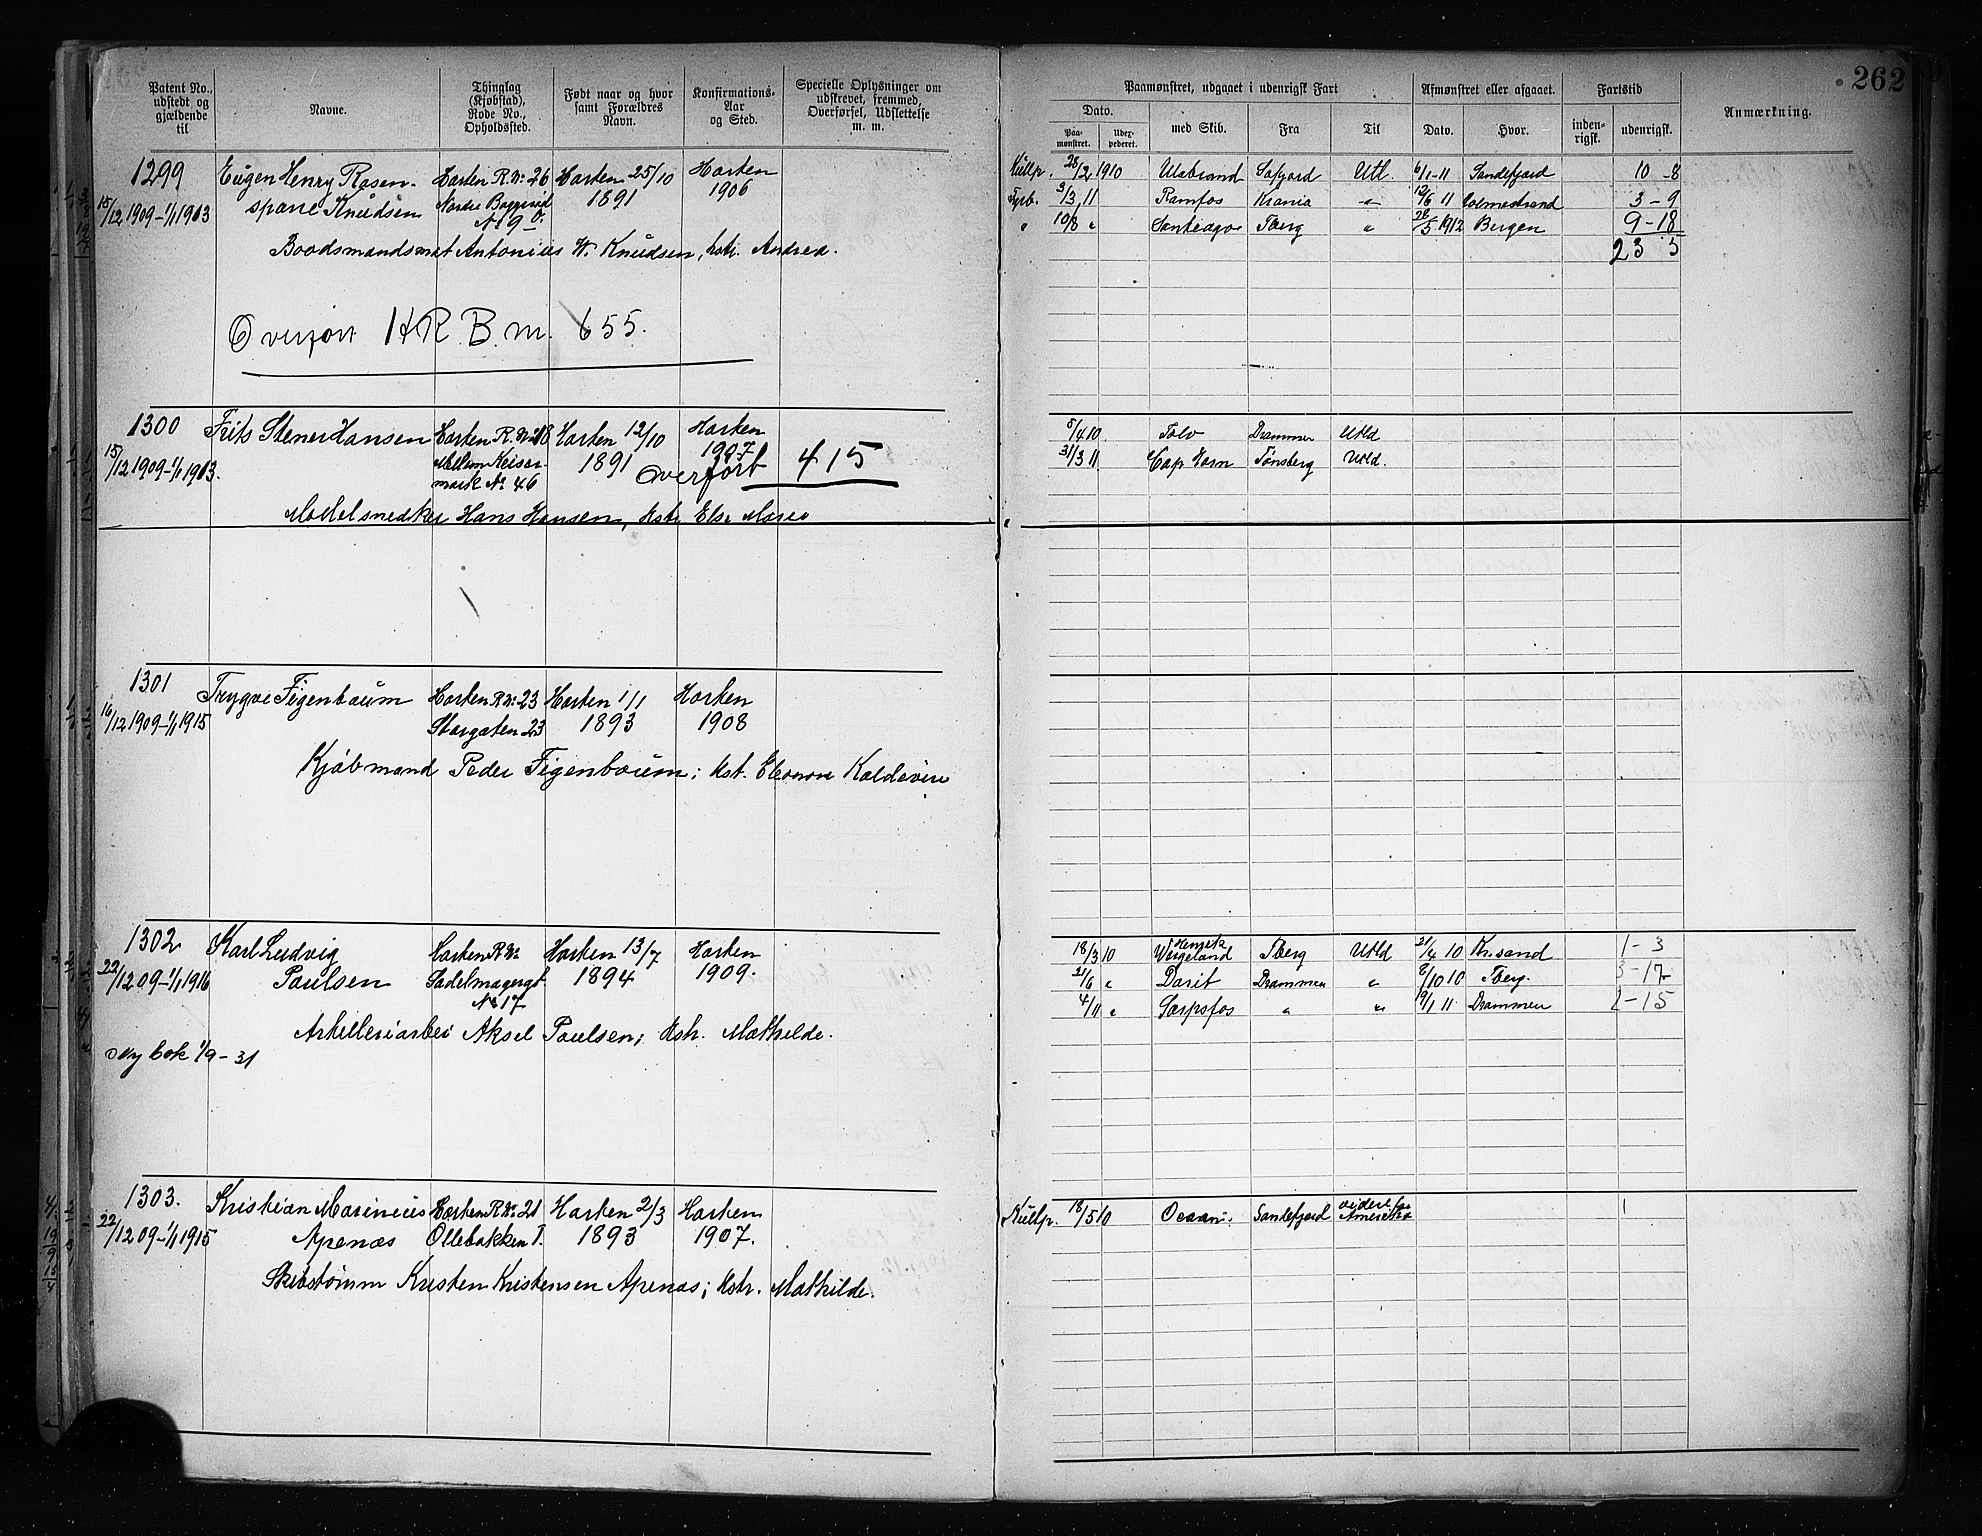 Patent No., udstedt og gjældende til
Navne.
Thinglag (Kjøbstad), Rode No., Opholdssted.
Født naar og hvor samt Forældres Navn.
Konfirmations-Aar og Sted.
Specielle Oplysninger om udskrevet, fremmed, Overførsel, Udslettelse m. m.
1299
15/12 1909–1/1 1913
Eugen Henry Rosen-
spane Knudsen
Horten R. No 26
No 19
Horten 25/10
1891
Horten
1906
Baadsmandsmat Antonius W. Knudsen, hstr. Andrea.
Overført HRB. m. 655.
1300
15/12 1909–1/1 1913.
Frits Stener Hansen
Horten R. No 18
Mellem Keiser-
mark No 46
Horten 12/10
1891
Horten
1907
overført 415
Modelsnedker Hans Hansen, hstr Else Marie
1301
16/12 1909–1/1 1915
Trygve Figenbaum
Horten R No 23
Storgaten 23
Horten 1/1
1893
Horten
1908
Kjøbmand Peder Figenbaum; hst. Eleonore Koldevin
1302
22/12 09–1/1 1916
Karl Ludvig
Paulsen
Horten R No
Sadelmagergt.
No 17
Horten 13/7
1894
Horten
1909.
Artilleriarbei Aksel Paulsen; hstr. Mathilde.
Ny bok 1/9 – 31
1303.
22/12 09–1/1 1915
Kristian Marinius
Apenæs
Horten R No 21
Ollebakken I.
Horten 2/3
1893
Horten
1907.
Skibstømm Kristen Kristensen Apenæs; hstr. Mathilde.
262
Paamønstret, udgaaet i udenrigsk Fart
Afmønstret eller afgaaet.
Fartstid
Anmærkning.
Dato.
Paa-mønstret.
Uder-pederet.
med Skib.
Fra
Til
Dato.
Hvor.
inden-rigsk.
udenrigsk.
Kullp. 28/2 1910 Ulabrand Safjord Utl 6/1-11 Sandefjord 10 – 8
Fyrb. 3/3 11 Ramfos Krania –"– 12/6 11 Holmestrand 3 – 9
" 10/8 " Santiago Tberg " 28/5 1912 Bergen 9 – 18
23 5
5/4 10 Tolv Drammen Utld
31/3 11 Cap Horn Tønsberg Utld.
18/3 10 Henrik Wergeland Tberg Utld 21/4 10 Kr.sand 1 – 3
21/6 " Dorit Drammen " 8/10 10 Tberg. 3 – 17
4/11 " Sarpsfos " " 19/1 11 Drammen 2 – 15
Kullp. 18/5 10 Ocean. Sandefjord Amerika 1